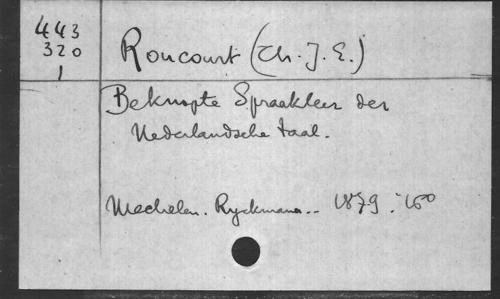 443
320
1
Roucourt (Ch. J. E.)
Beknopte Spraakleer der
Nederlandsche taal.
Mechelen. Ryckmans.. 1879. 16°